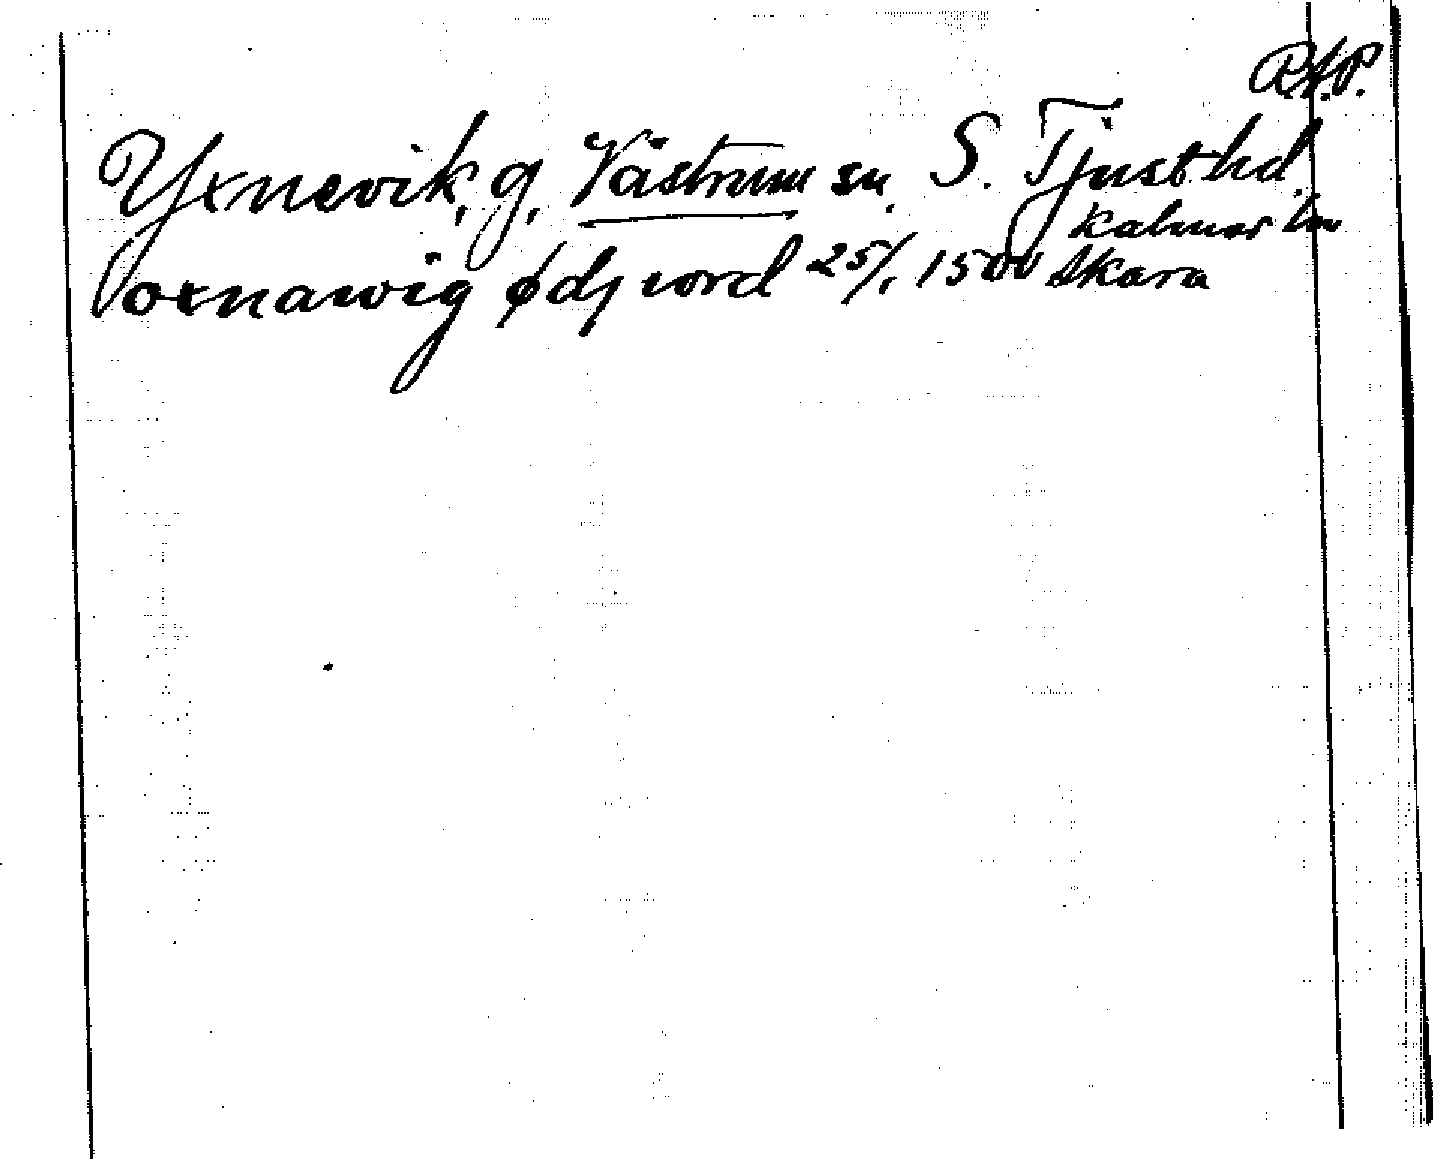 R.A.P.
Yxnevik, g, Västrum sn. S. Tjust hd.
Kalmar län
oxnawig ødj iord 25/1 1500 Skara